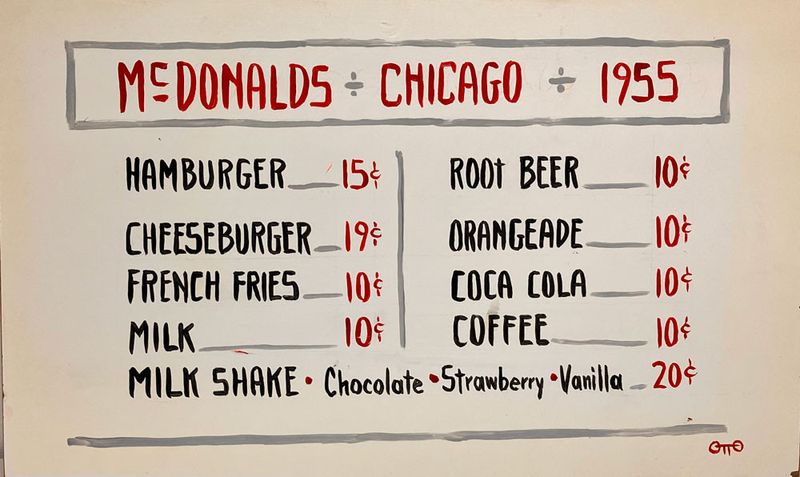 McDONALDS ÷ CHICAGO ÷ 1955
HAMBURGER 15¢
CHEESEBURGER 19¢
FRENCH FRIES 10¢
MILK 10¢
ROOt BEER 10¢
ORANGEADE 10¢
COCA COLA 10¢
COFFEE 10¢
MILK SHAKE • Chocolate • Strawberry • Vanilla 20¢
OTTO